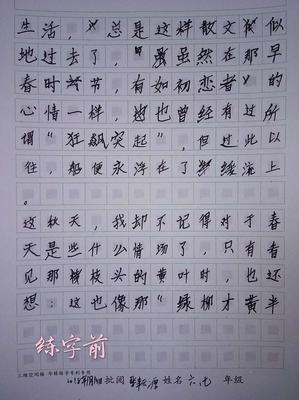 生活，总是这样散文似
地过去了，虽然在那早
春时节，有如初恋者的
心情一样，也曾经有过所
谓“狂飙突起”，但过此以
往，船便永浮在了缓流上
。
这秋天，我却不记得对于春
天是些什么情场了，只有看
见那枝头的黄叶时，也还
想：这也像那“绿柳才黄半
练字前
批阅 姓名 年级